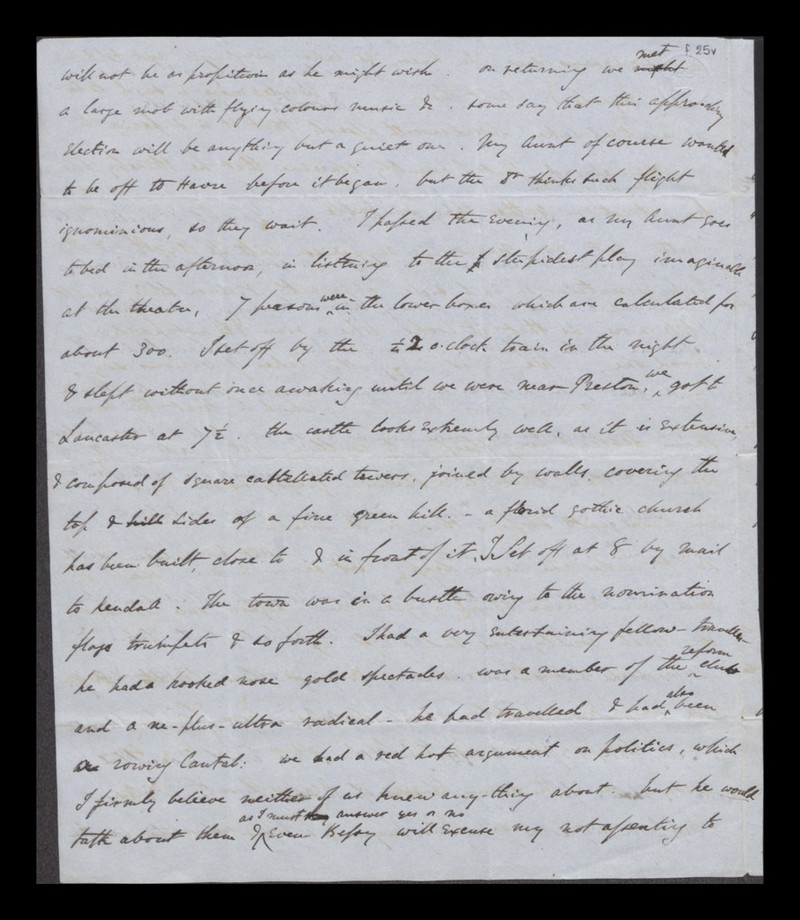 f 25v
will not be as propitious as he might wish. on returning we might met
a large mob with flying colours music &c. some say that this approachg
election will be anything but a quiet one. My Aunt of course wanted
to be off to Havre before it began, but the Dr thinks such flight
ignominious, so they wait. I passed the evening, as my Aunt goes
to bed in the afternoon, in listning to the stupidest play imaginable
at the theatre, 7 persons were in the lower boxes which are calculated for
about 300. I set off by the ½ 2 o.clock train in the night
& slept without once awaking until we were near Preston, we got to
Lancaster at 7½. the castle looks extremely well, as it is extensive,
& composed of square castellated towers, joined by walls, covering the
top & sides of a fine green hill. - a florid gothic church
has been built, close to & in front of it. I set off at 8 by mail
to Kendall. the town was in a bustle owing to the nomination
flags trumpets & so forth. I had a very entertaining fellow-traveller
he had a hooked nose gold spectacles. was a member of the reform club
and a ne-plus-ultra radical - he had travelled & had also been
a rowing Cantab: we had a red hot argument on politics, which
I firmly believe neither of us knew any-thing about. but he would
talk about them & as I must answer yes or no even Betsy will excuse my not assenting to